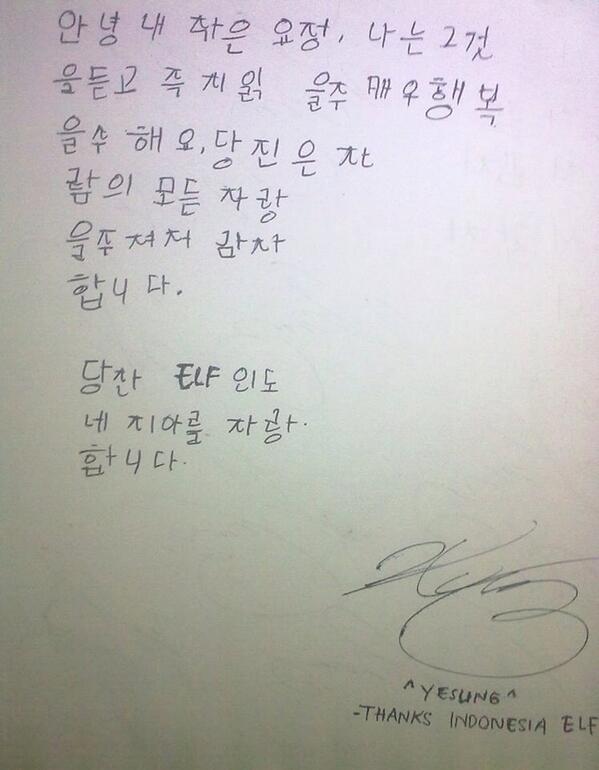 안녕 내 좌은 요정, 나는 그것
을듣고 즉 지읽 을주 매우행복
을수 해요,당진은 자
람의 모든 자랑
을주셔저 감자
합니다.
당잔 ELF 인도
네지아를 자랑.
합니다.
^YESUNG^
-THANKS INDONESIA ELF